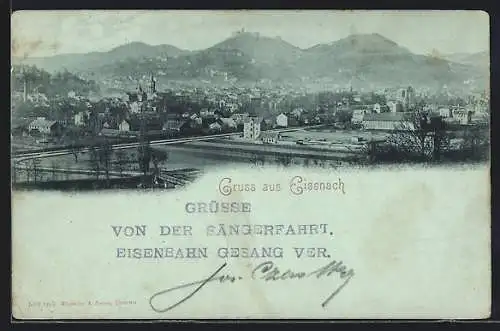 Gruss aus Eisenach
GRÜSSE
VON DER SÄNGERFAHRT.
EISENBAHN GESANG VER.
Jos.